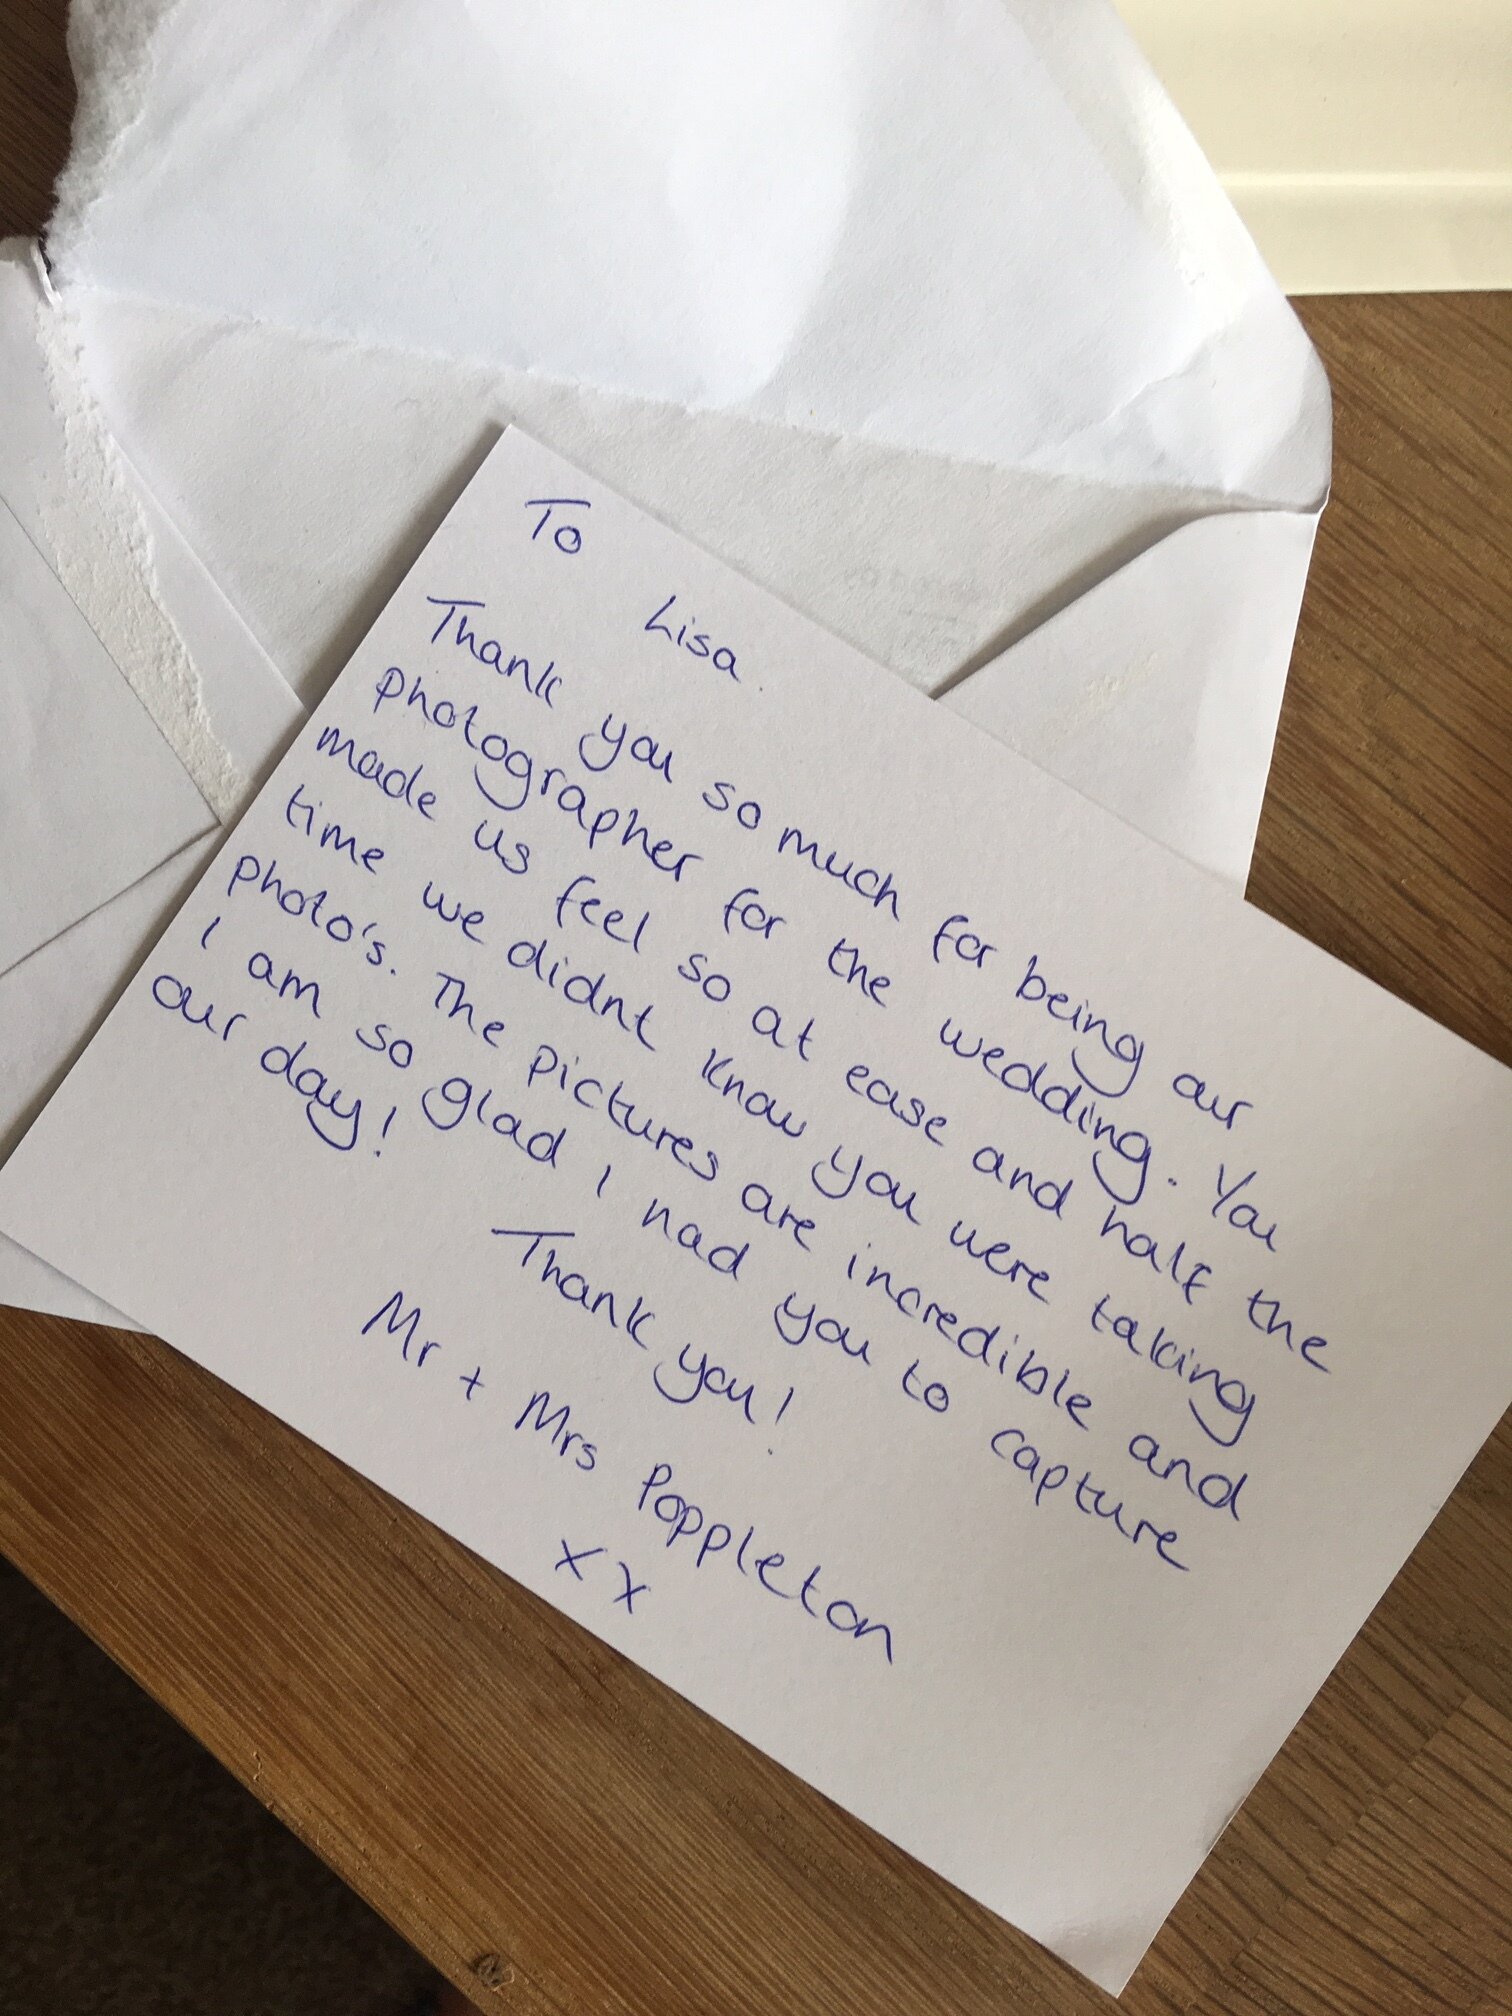 To
Lisa.
Thank you so much for being our
photographer for the wedding. You
made us feel so at ease and half the
time we didnt know you were taking
photo's. The pictures are incredible and
I am so glad I had you to capture
our day!
Thank you!
Mr + Mrs Poppleton
xx